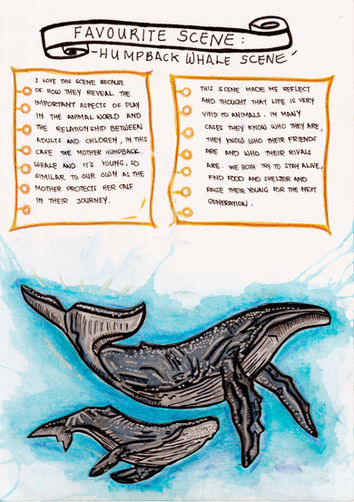 FAVOURITE SCENE:
-HUMPBACK WHALE SCENE-
I LOVE THIS SCENE BECAUSE
OF HOW THEY REVEAL THE
IMPORTANT ASPECTS OF PLAY
IN THE ANIMAL WORLD AND
THE RELATIONSHIP BETWEEN
ADULTS AND CHILDREN, IN THIS
CASE THE MOTHER HUMPBACK
WHALE AND IT'S YOUNG, SO
SIMILAR TO OUR OWN AS THE
MOTHER PROTECTS HER CALF
IN THEIR JOURNEY.
THIS SCENE MADE ME REFLECT
AND THOUGHT THAT LIFE IS VERY
VIVID TO ANIMALS. IN MANY
CASES THEY KNOW WHO THEY ARE,
THEY KNOW WHO THEIR FRIENDS
ARE AND WHO THEIR RIVALS
ARE. WE BOTH TRY TO STAY ALIVE,
FIND FOOD AND SHELTER AND
RAISE THEIR YOUNG FOR THE NEXT
GENERATION.